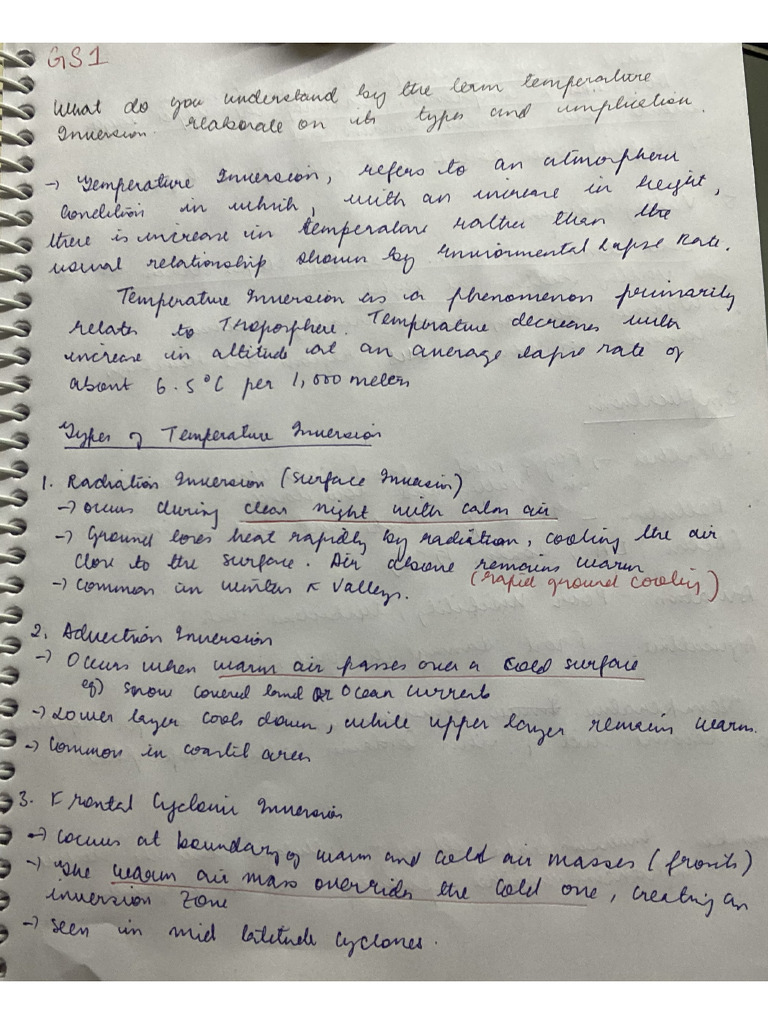 GS1
What do you understand by the term temperature
Inversion. elaborate on its types and implication.
→ Temperature Inversion, refers to an atmospheric
condition in which, with an increase in height,
there is increase in temperature rather than the
usual relationship shown by Environmental Lapse Rate.
Temperature Inversion as a phenomenon primarily
relates to Troposphere. Temperature decreases with
increase in altitude at an average lapse rate of
about 6.5°C per 1,000 meters
Types of Temperature Inversion
1. Radiation Inversion (Surface Inversion)
→ occurs during clear night with calm air
→ Ground loses heat rapidly by radiation, cooling the air
close to the surface. Air above remains warm
→ Common in winters & Valleys. (rapid ground cooling)
2. Advection Inversion
→ Occurs when warm air passes over a cold surface
eg) snow covered land or Ocean currents
→ Lower layer cools down, while upper layer remains warm.
→ Common in coastal areas
3. Frontal Cyclonic Inversion
→ occurs at boundary of warm and cold air masses (fronts)
→ The warm air mass overrides the cold one, creating an
inversion zone
→ seen in mid latitude cyclones.